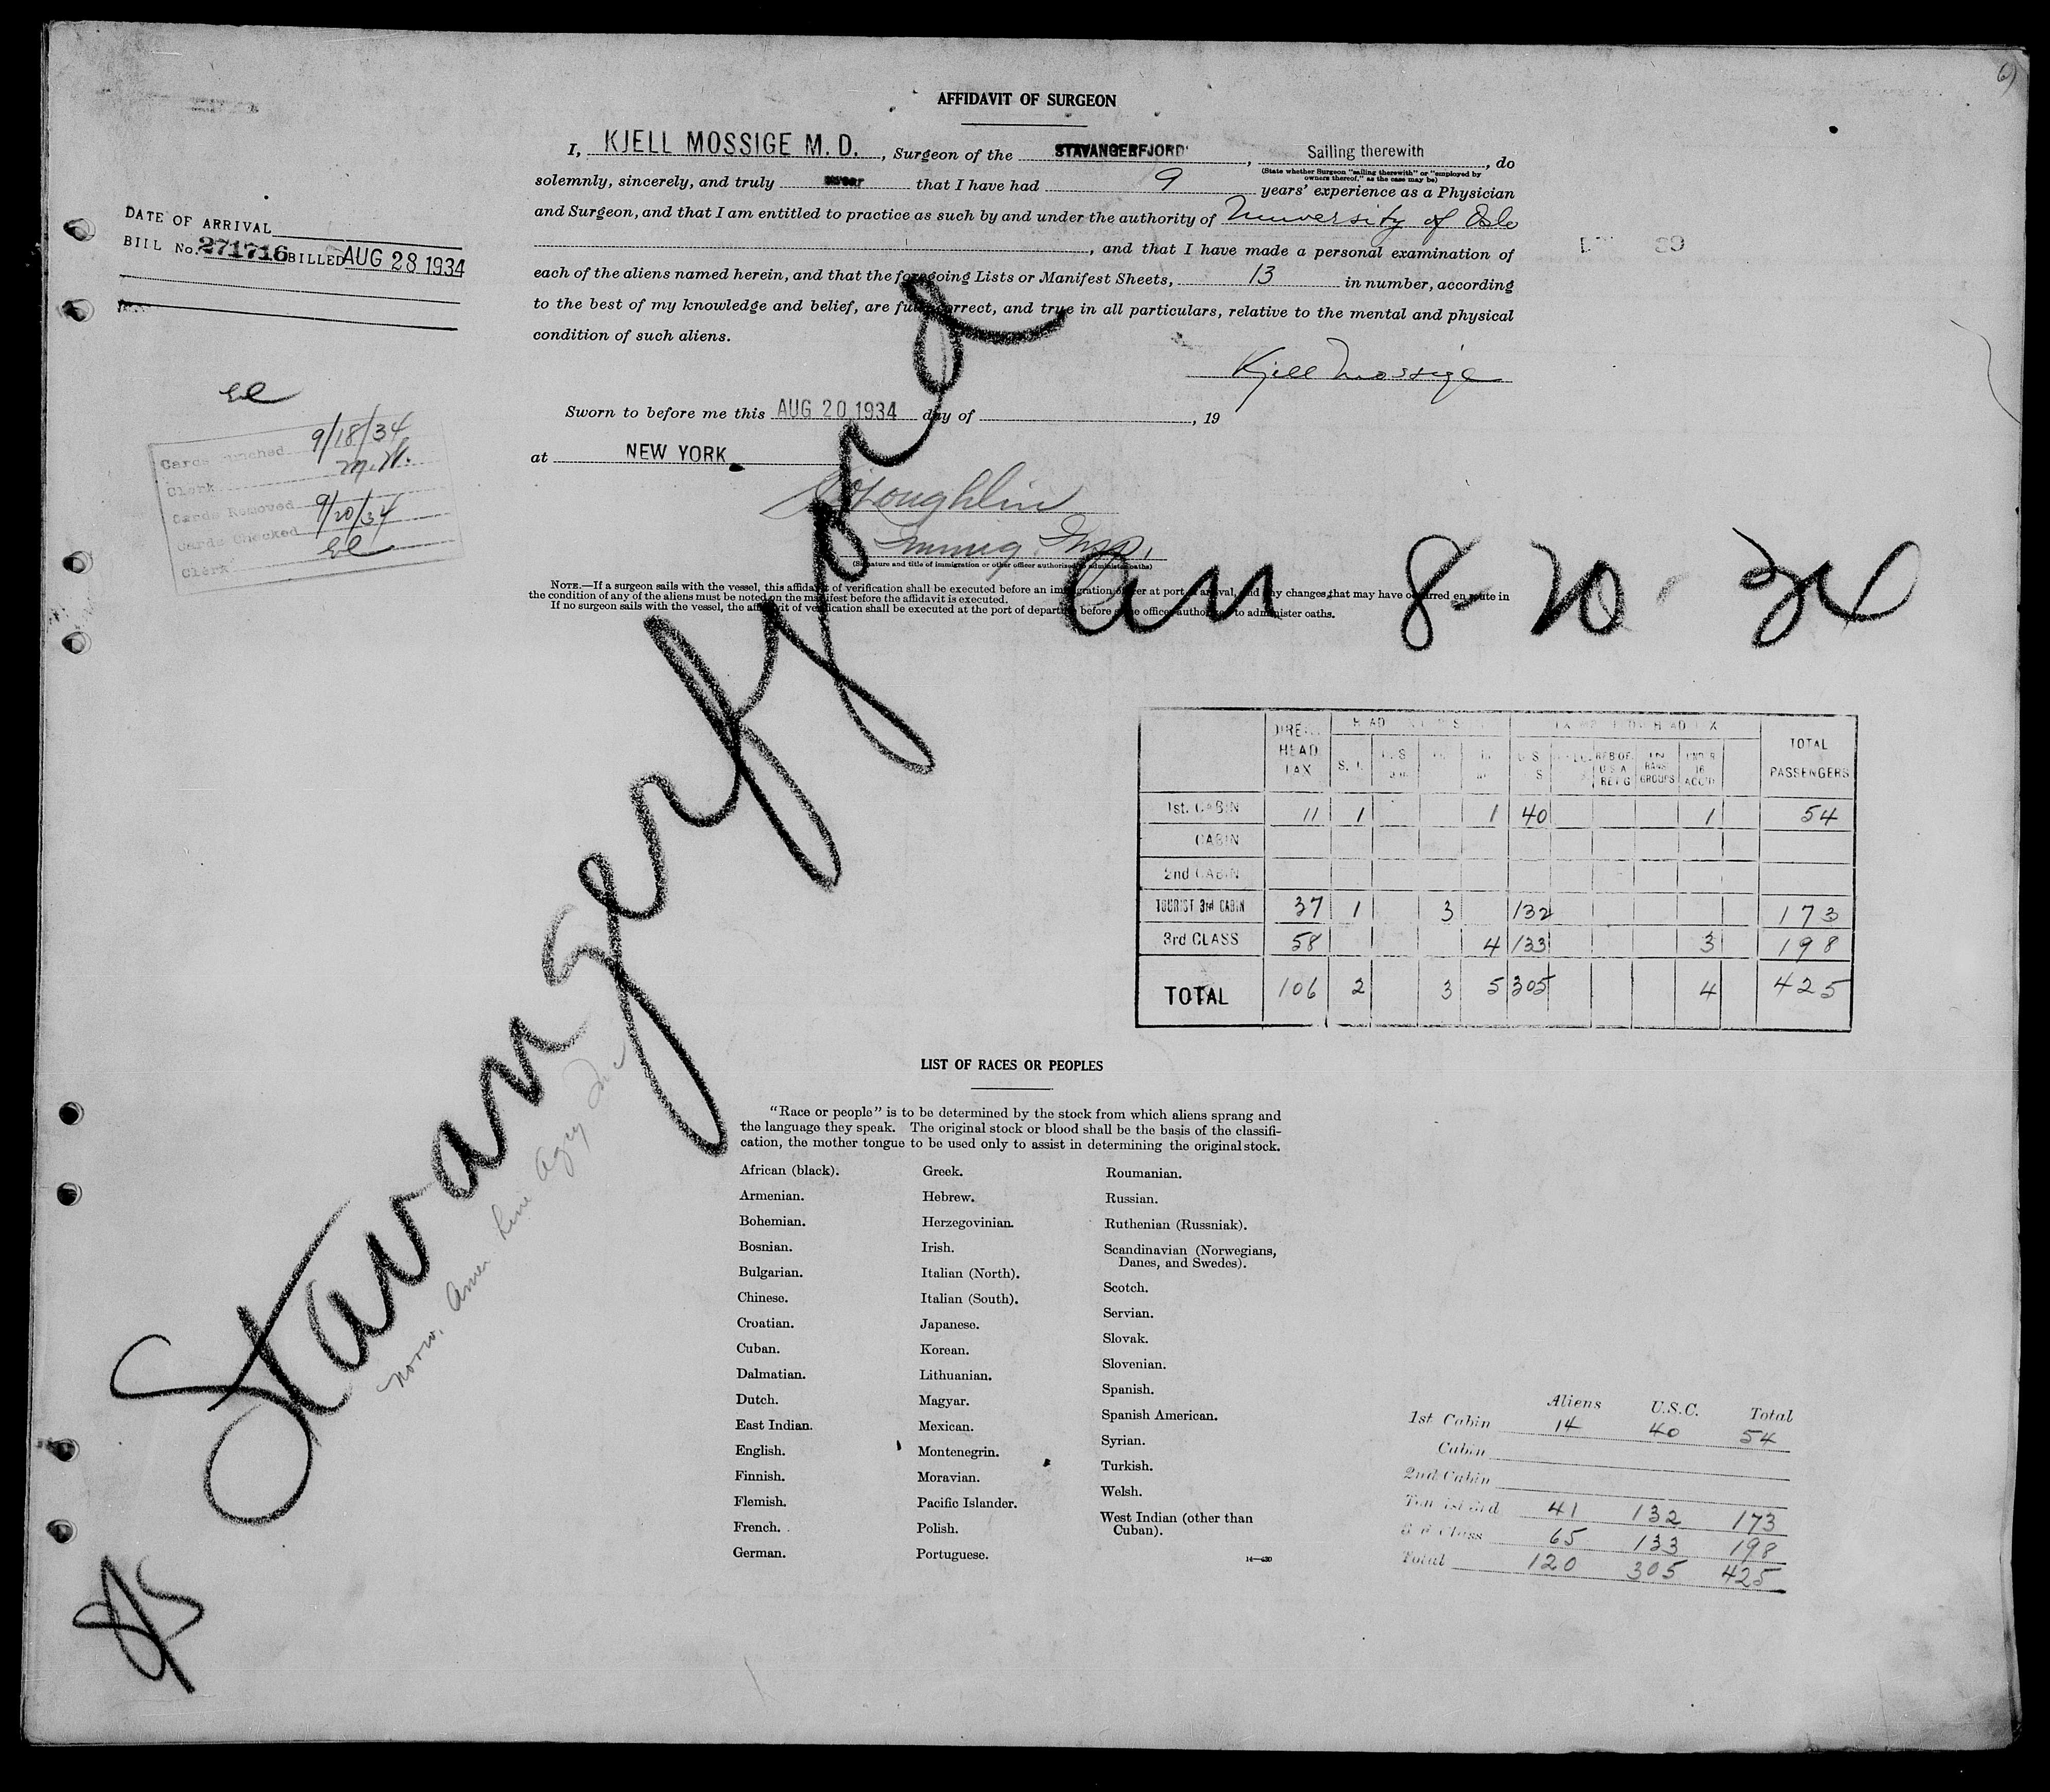 AFFIDAVIT OF SURGEON
I, KJELL MOSSIGE M. D., Surgeon of the STAVANGERFJORD, Sailing therewith, do
(State whether Surgeon "sailing therewith" or "employed by
owners thereof," as the case may be)
solemnly, sincerely, and truly swear that I have had 9 years' experience as a Physician
and Surgeon, and that I am entitled to practice as such by and under the authority of University of Oslo
, and that I have made a personal examination of
each of the aliens named herein, and that the foregoing Lists or Manifest Sheets, 13 in number, according
to the best of my knowledge and belief, are full, correct, and true in all particulars, relative to the mental and physical
condition of such aliens.
Kjell Mossige
Sworn to before me this AUG 20 1934 day of , 19
at NEW YORK
O'Loughlin
Immig. Insp.
(Signature and title of immigration or other officer authorized to administer oaths)
NOTE.—If a surgeon sails with the vessel, this affidavit of verification shall be executed before an immigration officer at port of arrival, and any changes that may have occurred en route in
the condition of any of the aliens must be noted on the manifest before the affidavit is executed.
If no surgeon sails with the vessel, the affidavit of verification shall be executed at the port of departure before some officer authorized to administer oaths.
DATE OF ARRIVAL
BILL No. 271716 BILLED AUG 28 1934
Cards Punched 9/18/34
Clerk M.W.
Cards Removed
Cards Checked 9/20/34
Clerk
Stavangerfjord
an 8-20-34
Norw. Amer Line Agcy Inc
HEAD TAX
TOTAL PASSENGERS
S. I.
UNDER 16 ACC'D
1st. CABIN 11 1 1 40 1 54
CABIN
2nd CABIN
TOURIST 3rd CABIN 37 1 3 132 173
3rd CLASS 58 4 133 3 198
TOTAL 106 2 3 5 305 4 425
LIST OF RACES OR PEOPLES
"Race or people" is to be determined by the stock from which aliens sprang and
the language they speak. The original stock or blood shall be the basis of the classifi-
cation, the mother tongue to be used only to assist in determining the original stock.
African (black).
Armenian.
Bohemian.
Bosnian.
Bulgarian.
Chinese.
Croatian.
Cuban.
Dalmatian.
Dutch.
East Indian.
English.
Finnish.
Flemish.
French.
German.
Greek.
Hebrew.
Herzegovinian.
Irish.
Italian (North).
Italian (South).
Japanese.
Korean.
Lithuanian.
Magyar.
Mexican.
Montenegrin.
Moravian.
Pacific Islander.
Polish.
Portuguese.
Roumanian.
Russian.
Ruthenian (Russniak).
Scandinavian (Norwegians,
Danes, and Swedes).
Scotch.
Servian.
Slovak.
Slovenian.
Spanish.
Spanish American.
Syrian.
Turkish.
Welsh.
West Indian (other than
Cuban).
14—430
Aliens U.S.C. Total
1st Cabin 14 40 54
Cabin
2nd Cabin
Tourist 3rd 41 132 173
3rd Class 65 133 198
Total 120 305 425